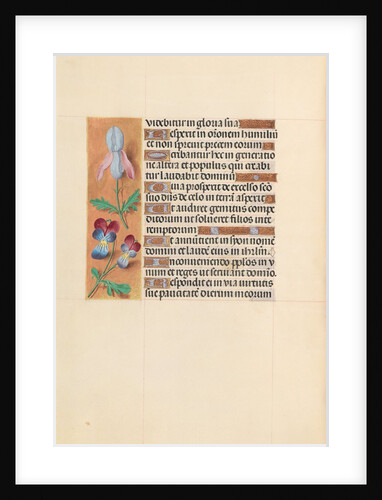 videbitur in gloria sua
Respexit in oronem humiliū
et non sprevit precem eorum
Scribantur hec in generatio
ne altera et populus qui creabi
tur laudabit dominū
Quia prospexit de excelso scō
suo dn̄s de celo in terrā aspexit
Ut audiret gemitus compe
ditorum ut solveret filios inte
remptorum
Ut annūcient in syon nomē
domini et laudē eius in ihrlm̄
In conveniendo pplos in v
num et reges ut serviant domīo
Respondit ei in via virtutis
sue paucitatē dierum meorum